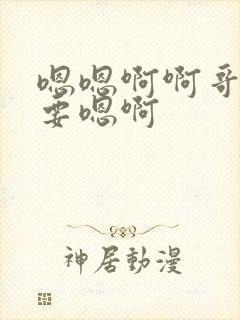 嗯嗯啊啊哥
要嗯啊
神居動漫